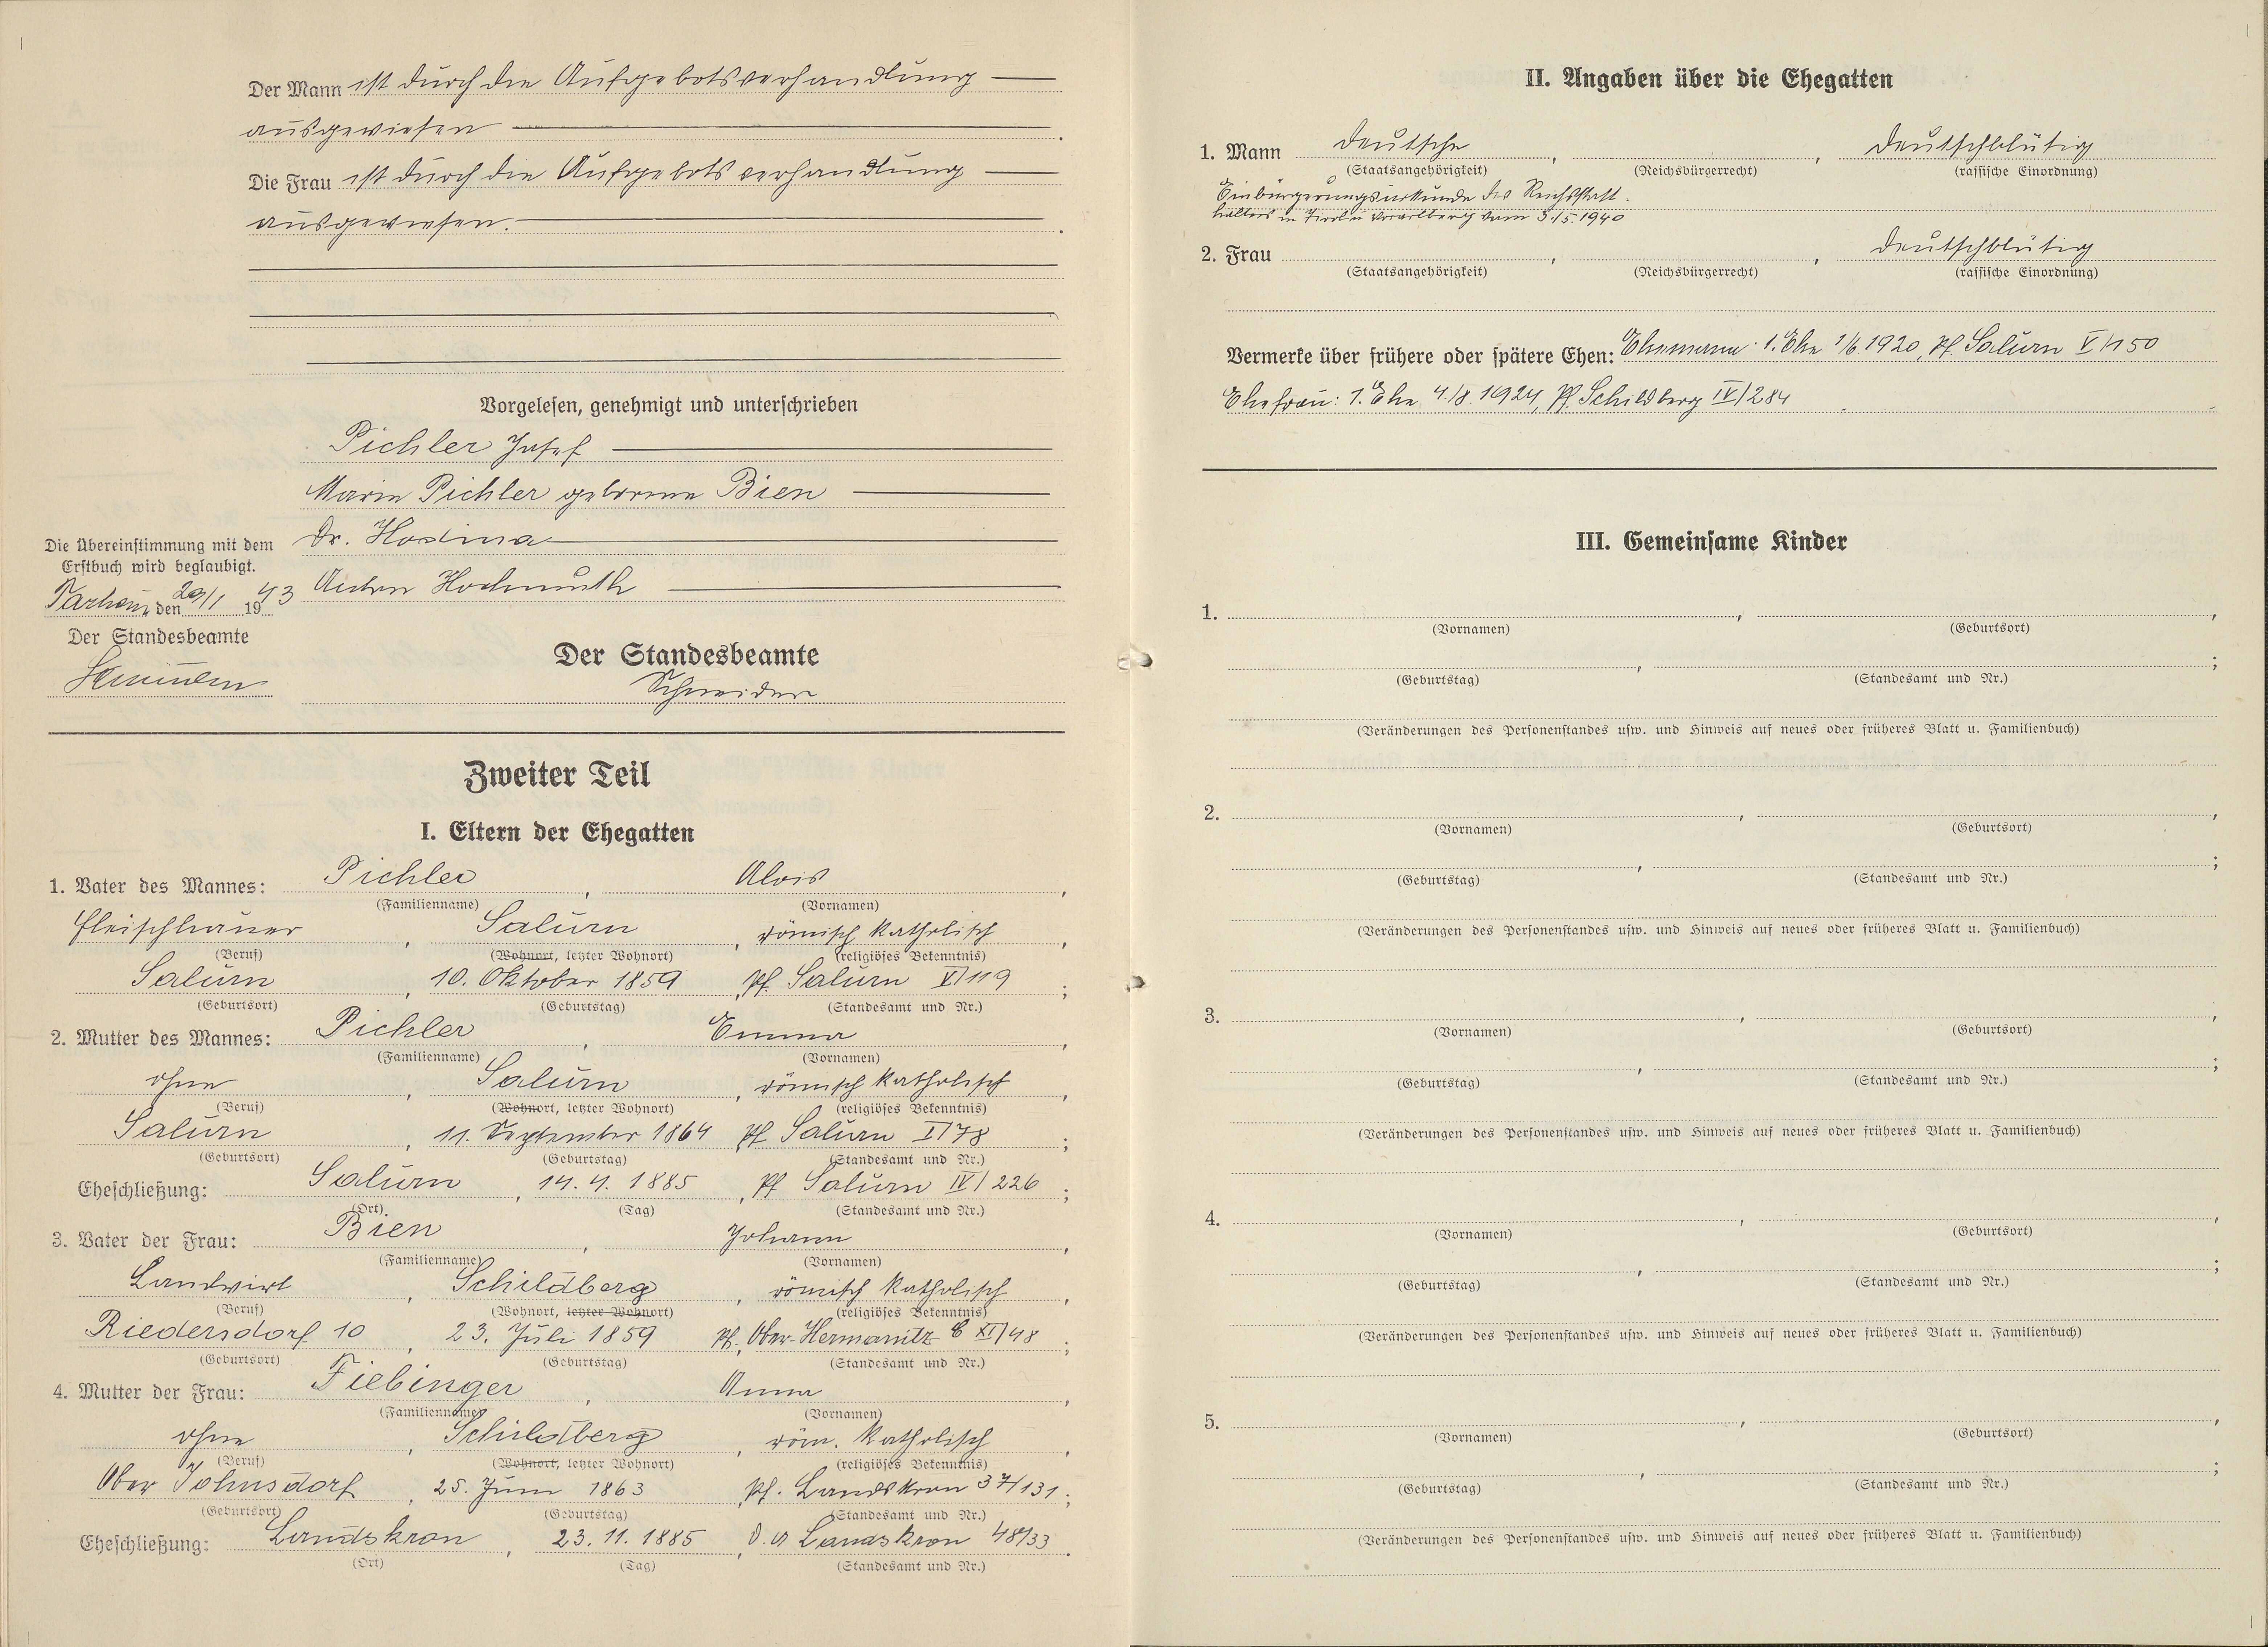 Der Mann ist durch die Aufgebotsverhandlung
ausgewiesen
Die Frau ist durch die Aufgebotsverhandlung
ausgewiesen.
Vorgelesen, genehmigt und unterschrieben
Pichler Josef
Marie Pichler geborene Bien
Dr. Hosina
Anton Hochmuth
Die Übereinstimmung mit dem
Erstbuch wird beglaubigt.
den 29/1 1943
Der Standesbeamte
Der Standesbeamte
Schneider
Zweiter Teil
I. Eltern der Ehegatten
1. Vater des Mannes: Pichler, Alois,
(Familienname) (Vornamen)
Fleischhauer, Salurn, römisch katholisch,
(Beruf) (Wohnort, letzter Wohnort) (religiöses Bekenntnis)
Salurn, 10. Oktober 1859, Pf. Salurn V/119;
(Geburtsort) (Geburtstag) (Standesamt und Nr.)
2. Mutter des Mannes: Pichler, Emma,
(Familienname) (Vornamen)
ohne, Salurn, römisch katholisch,
(Beruf) (Wohnort, letzter Wohnort) (religiöses Bekenntnis)
Salurn, 11. September 1864, Pf Salurn I/78;
(Geburtsort) (Geburtstag) (Standesamt und Nr.)
Eheschließung: Salurn, 14. 4. 1885, Pf Salurn IV/226;
(Ort) (Tag) (Standesamt und Nr.)
3. Vater der Frau: Bien, Johann,
(Familienname) (Vornamen)
Landwirt, Schildberg, römisch katholisch,
(Beruf) (Wohnort, letzter Wohnort) (religiöses Bekenntnis)
Riedersdorf 10, 23. Juli 1859, Pf. Ober-Hermanitz XI/48;
(Geburtsort) (Geburtstag) (Standesamt und Nr.)
4. Mutter der Frau: Fiebinger, Anna,
(Familienname) (Vornamen)
ohne, Schildberg, röm. katholisch,
(Beruf) (Wohnort, letzter Wohnort) (religiöses Bekenntnis)
Ober Johnsdorf, 25. Juni 1863, Pf. Landskron 37/131;
(Geburtsort) (Geburtstag) (Standesamt und Nr.)
Eheschließung: Landskron, 23. 11. 1885, D. A Landskron 48/33.
(Ort) (Tag) (Standesamt und Nr.)
II. Angaben über die Ehegatten
1. Mann deutsche, , deutschblütig
(Staatsangehörigkeit) (Reichsbürgerrecht) (rassische Einordnung)
Einbürgerungsurkunde des Reichsstatt-
halters in Tirol u Vorarlberg vom 3/5. 1940
2. Frau , , deutschblütig
(Staatsangehörigkeit) (Reichsbürgerrecht) (rassische Einordnung)
Vermerke über frühere oder spätere Ehen: Ehemann: 1. Ehe 1/6 1920, Pf. Salurn V/150
Ehefrau: 1. Ehe 4./8. 1924, Pf. Schildberg IV/284
III. Gemeinsame Kinder
1. , ,
(Vornamen) (Geburtsort)
, ;
(Geburtstag) (Standesamt und Nr.)
(Veränderungen des Personenstandes usw. und Hinweis auf neues oder früheres Blatt u. Familienbuch)
2. , ,
(Vornamen) (Geburtsort)
, ;
(Geburtstag) (Standesamt und Nr.)
(Veränderungen des Personenstandes usw. und Hinweis auf neues oder früheres Blatt u. Familienbuch)
3. , ,
(Vornamen) (Geburtsort)
, ;
(Geburtstag) (Standesamt und Nr.)
(Veränderungen des Personenstandes usw. und Hinweis auf neues oder früheres Blatt u. Familienbuch)
4. , ,
(Vornamen) (Geburtsort)
, ;
(Geburtstag) (Standesamt und Nr.)
(Veränderungen des Personenstandes usw. und Hinweis auf neues oder früheres Blatt u. Familienbuch)
5. , ,
(Vornamen) (Geburtsort)
, ;
(Geburtstag) (Standesamt und Nr.)
(Veränderungen des Personenstandes usw. und Hinweis auf neues oder früheres Blatt u. Familienbuch)